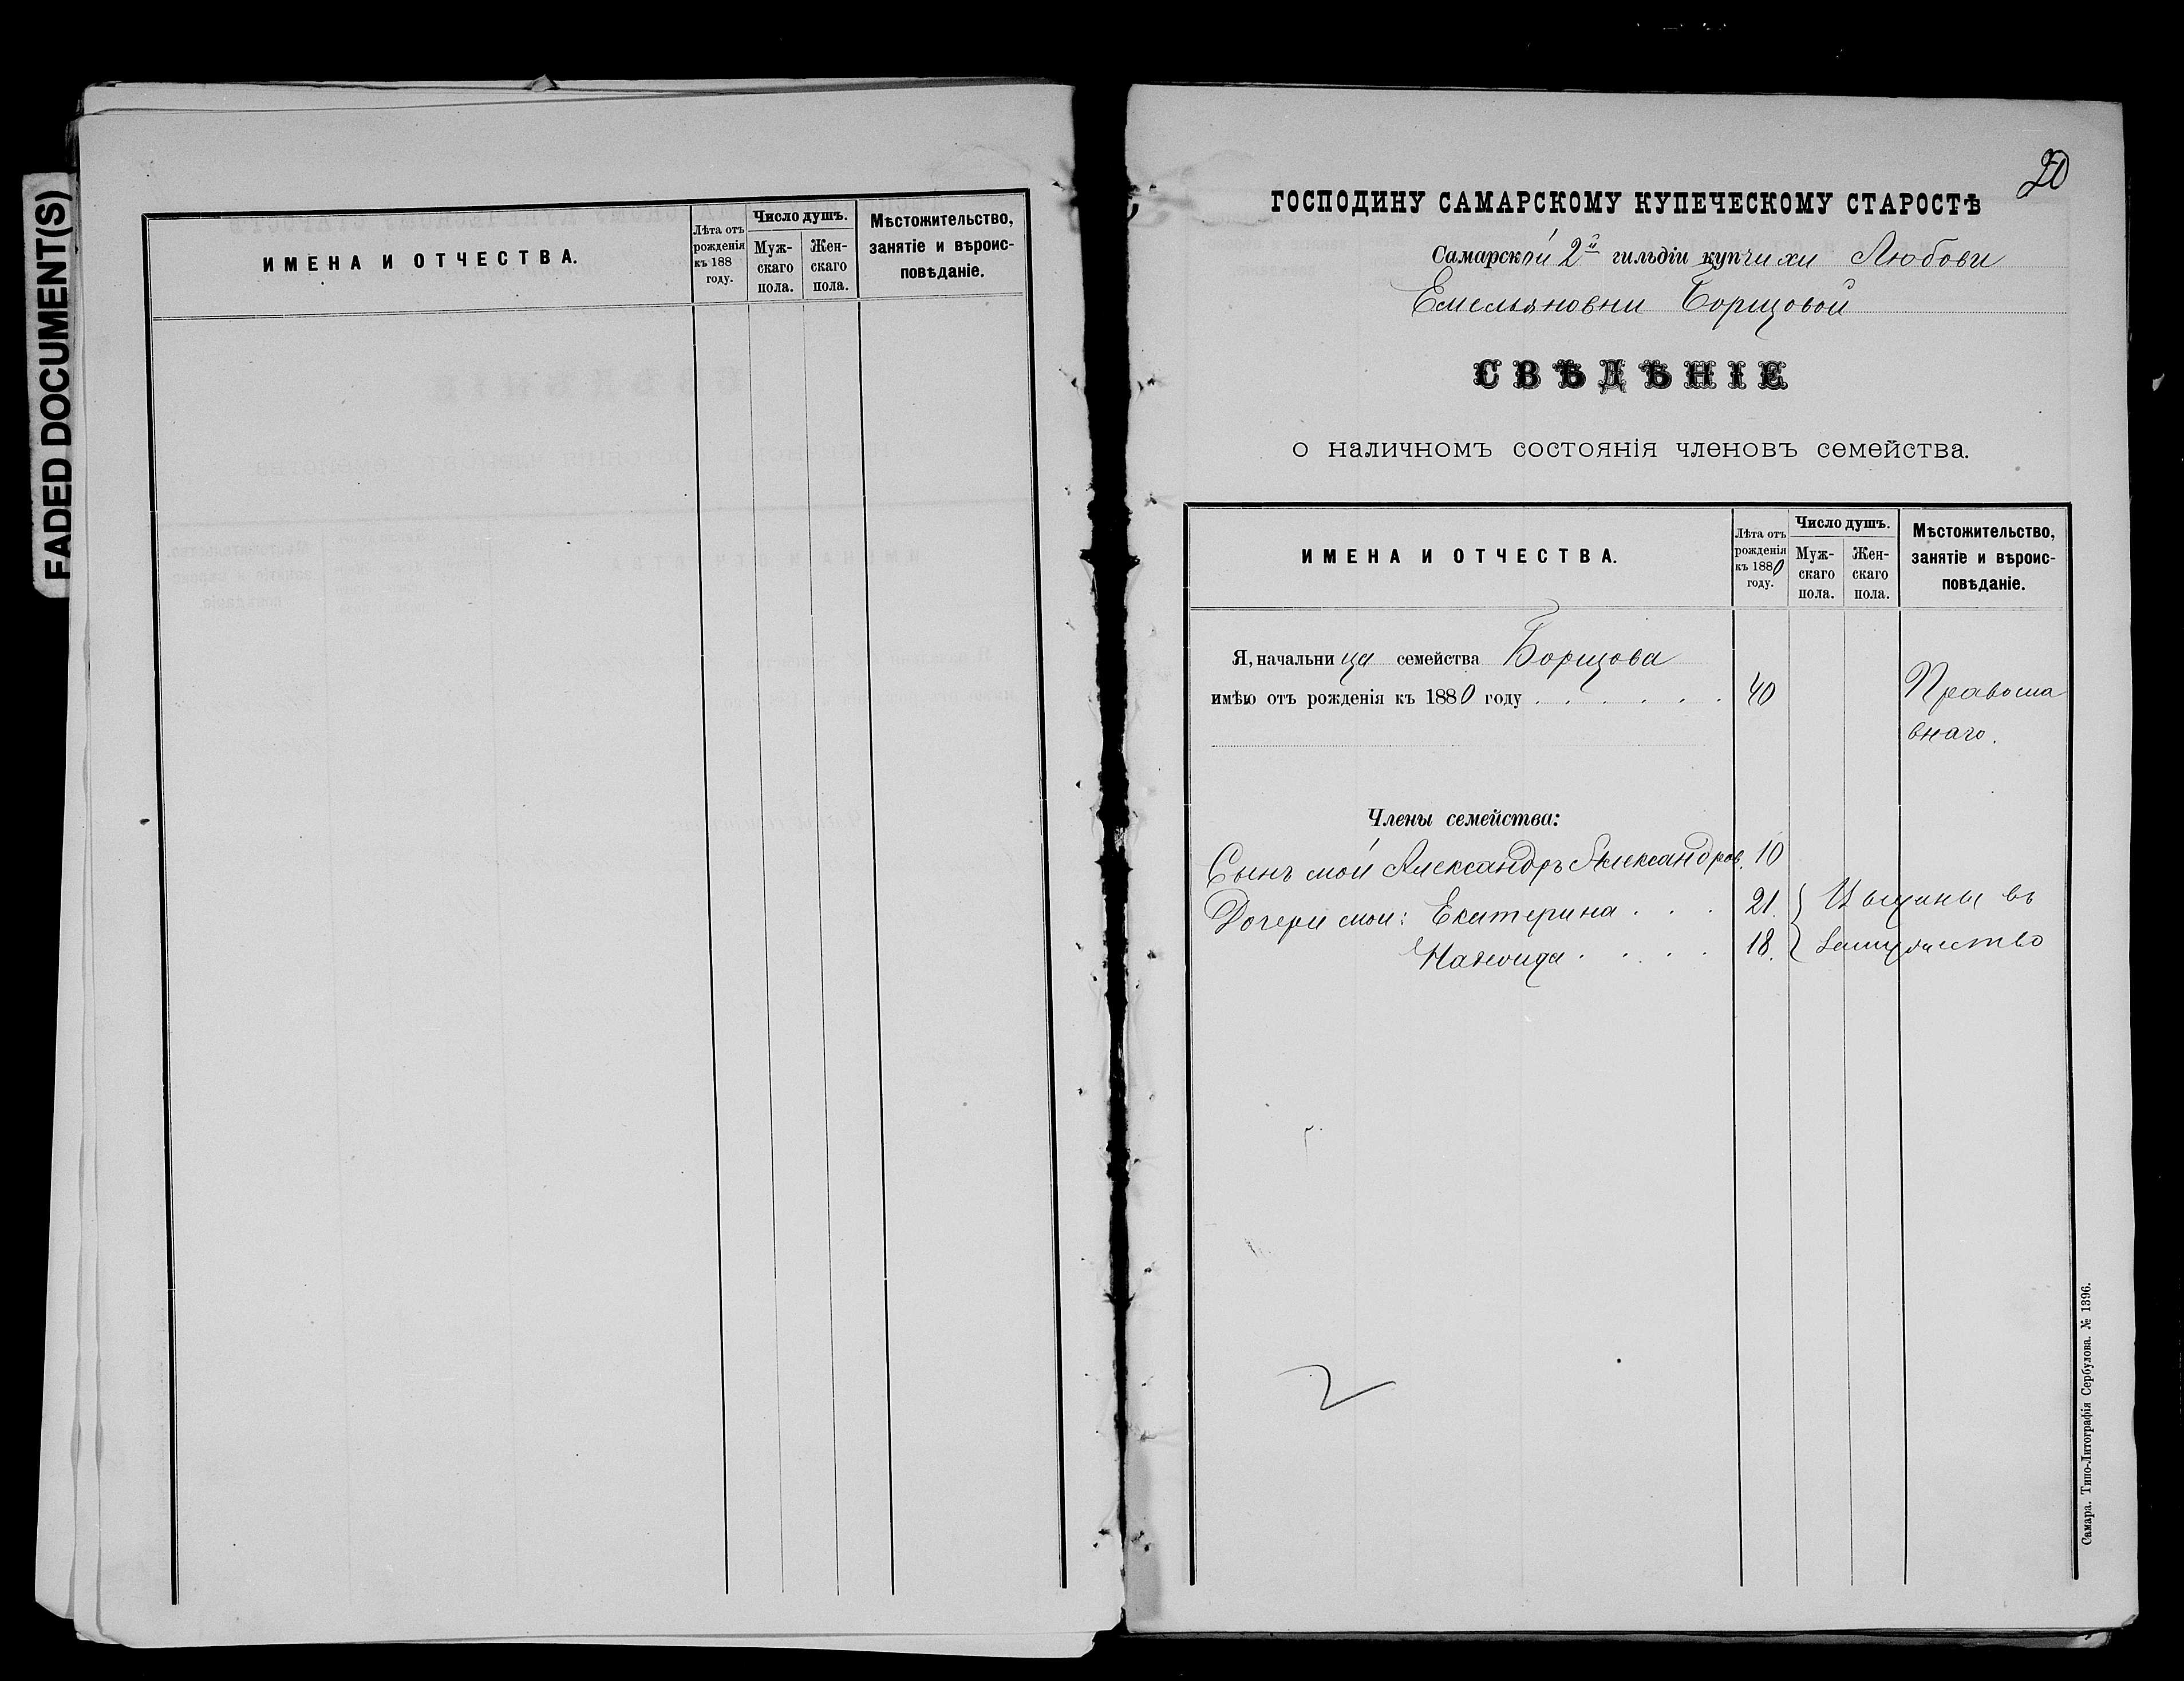 FADED DOCUMENT(S)
ИМЕНА И ОТЧЕСТВА.
Лѣта отъ рожденія къ 188 году.
Число душъ.
Мужскаго пола.
Женскаго пола.
Мѣстожительство, занятіе и вѣроисповѣданіе.
ГОСПОДИНУ САМАРСКОМУ КУПЕЧЕСКОМУ СТАРОСТѢ
Самарской 2й гильдіи купчихи Любови
Емельяновни Борщовой
СВѢДѢНІЕ
о наличномъ состоянія членовъ семейства.
ИМЕНА И ОТЧЕСТВА.
Лѣта отъ рожденія къ 1880 году.
Число душъ.
Мужскаго пола.
Женскаго пола.
Мѣстожительство, занятіе и вѣроисповѣданіе.
Я, начальница семейства Борщова
имѣю отъ рожденія къ 1880 году . . . . . . 40 Правосла
внаго.
Члены семейства:
Сынъ мой Александръ Александров. 10
Дочери мои: Екатерина . . . 21. въ
18. замужество
2
Самара. Типо-Литографія Сербулова. № 1396.